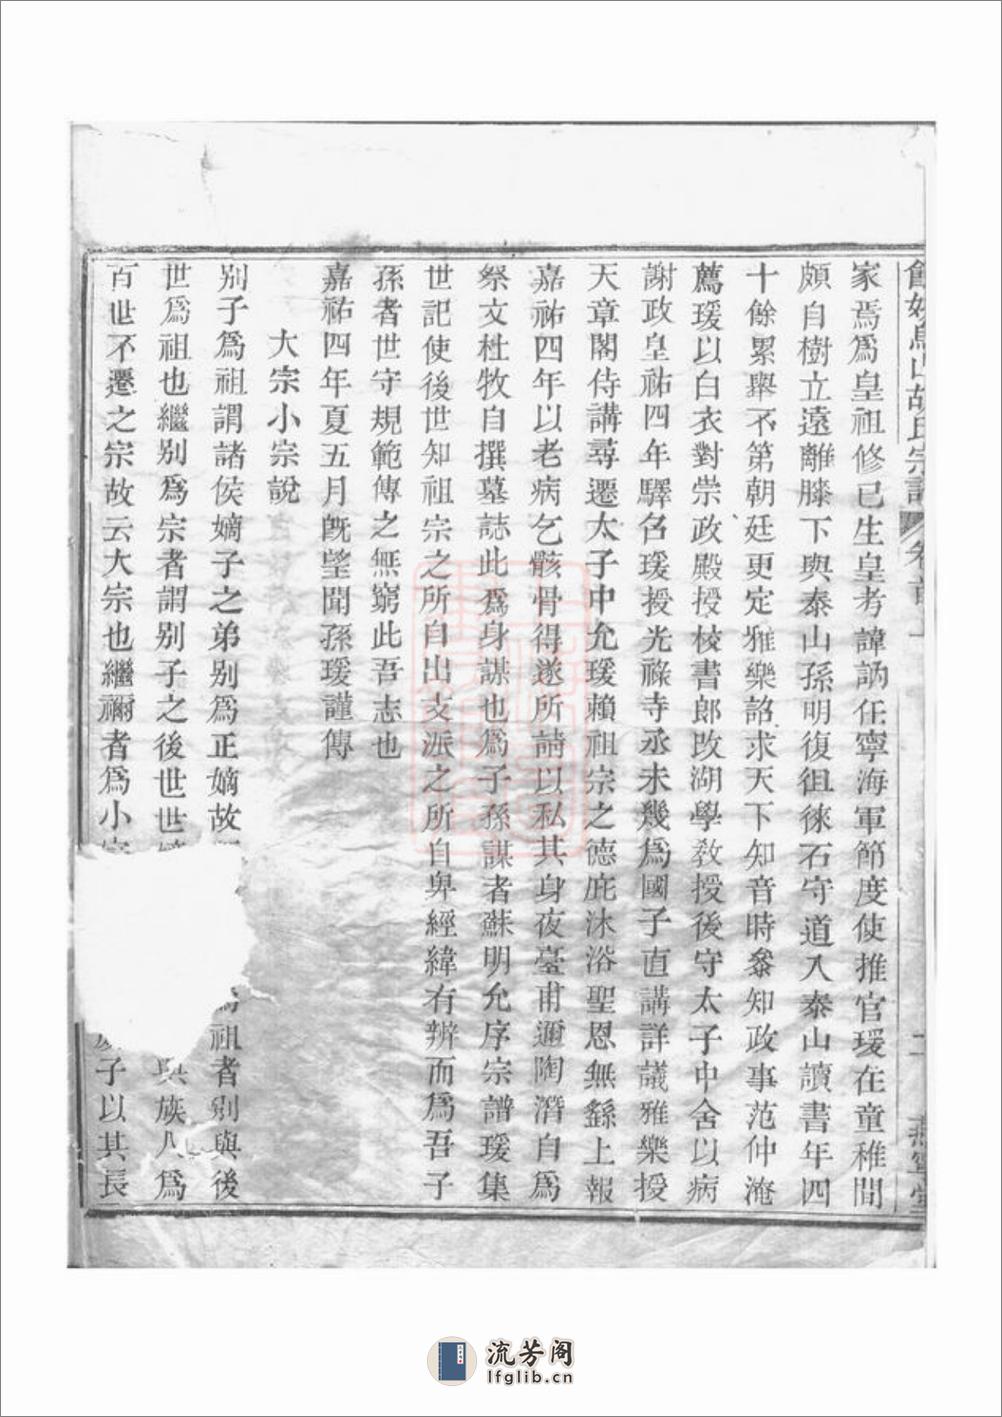 餘姚烏山胡氏宗譜 卷首 二 燕翼堂
家焉為皇祖修已生皇考諱訥任寧海軍節度使推官瑗在童稚間
頗自樹立遠離膝下與泰山孫明復徂徠石守道入泰山讀書年四
十餘累舉不第朝廷更定雅樂詔求天下知音時叅知政事范仲淹
薦瑗以白衣對崇政殿授校書郎改湖學教授後守太子中舍以病
謝政皇祐四年驛召瑗授光祿寺丞未幾為國子直講詳議雅樂授
天章閣侍講尋遷太子中允瑗賴祖宗之德庇沐浴聖恩無繇上報
嘉祐四年以老病乞骸骨得遂所請以私其身夜臺甫邇陶潛自為
祭文杜牧自撰墓誌此為身謀也為子孫謀者蘇明允序宗譜瑗集
世記使後世知祖宗之所自出支派之所自異經緯有辨而為吾子
孫者世守規範傳之無窮此吾志也
嘉祐四年夏五月既望聞孫瑗謹傳
大宗小宗說
別子為祖謂諸侯嫡子之弟別為正嫡故 為祖者別與後
世為祖也繼別為宗者謂別子之後世世嫡 與族人為
百世不遷之宗故云大宗也繼禰者為小宗 子以其長
流芳阁
lfglib.cn